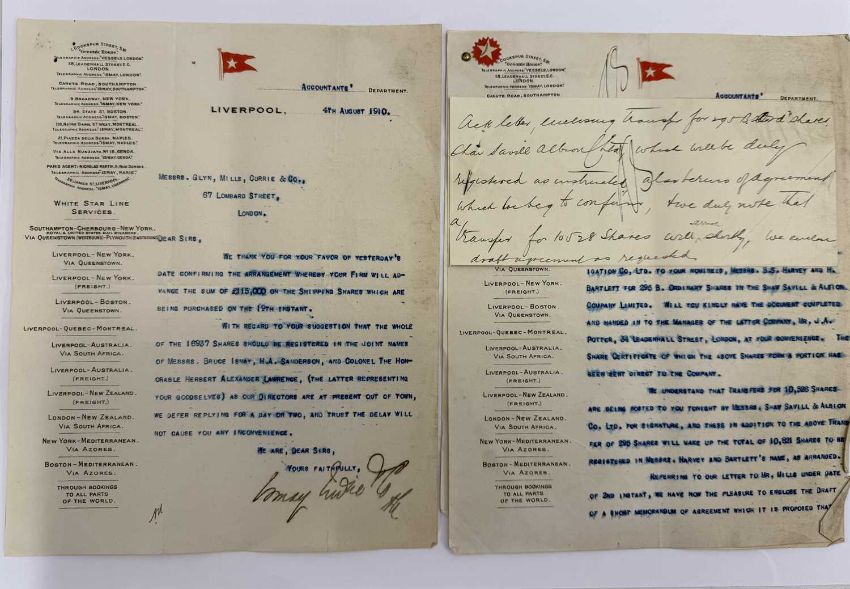 1 COCKSPUR STREET, S.W.
"OCEANIC HOUSE".
TELEGRAPHIC ADDRESS "VESSELS, LONDON".
38, LEADENHALL STREET, E.C.
LONDON.
TELEGRAPHIC ADDRESS "ISMAY, LONDON".
CANUTE ROAD, SOUTHAMPTON
TELEGRAPHIC ADDRESS "ISMAY, SOUTHAMPTON".
9 BROADWAY, NEW YORK.
TELEGRAPHIC ADDRESS "ISMAY, NEW YORK".
84, STATE ST, BOSTON.
TELEGRAPHIC ADDRESS "ISMAY, BOSTON".
TELEGRAPHIC ADDRESS "ISMAY, MONTREAL".
21, PIAZZA DELLA BORSA, NAPLES.
TELEGRAPHIC ADDRESS "ISMAY, NAPLES".
VIA ALLA NUNZIATA No 18, GENOA.
TELEGRAPHIC ADDRESS "ISMAY, GENOA".
PARIS AGENT: NICHOLAS MARTIN, 9, RUE SCRIBE.
30 JAMES ST, LIVERPOOL.
WHITE STAR LINE
SERVICES.
SOUTHAMPTON-CHERBOURG-NEW YORK.
ROYAL & UNITED STATES MAIL STEAMERS
VIA QUEENSTOWN (WESTBOUND)-PLYMOUTH (EASTBOUND)
LIVERPOOL-NEW YORK.
VIA QUEENSTOWN.
LIVERPOOL-NEW YORK.
(FREIGHT.)
LIVERPOOL-BOSTON.
VIA QUEENSTOWN.
LIVERPOOL-QUEBEC-MONTREAL.
LIVERPOOL-AUSTRALIA.
VIA SOUTH AFRICA.
LIVERPOOL-AUSTRALIA.
(FREIGHT.)
LIVERPOOL-NEW ZEALAND.
(FREIGHT.)
LONDON-NEW ZEALAND.
VIA SOUTH AFRICA.
NEW YORK-MEDITERRANEAN.
VIA AZORES.
BOSTON-MEDITERRANEAN.
VIA AZORES.
THROUGH BOOKINGS
TO ALL PARTS
OF THE WORLD.
ACCOUNTANTS' DEPARTMENT.
LIVERPOOL, 4TH AUGUST 1910.
MESSRS. GLYN, MILLS, CURRIE & CO.,
67 LOMBARD STREET,
LONDON.
DEAR SIRS,
WE THANK YOU FOR YOUR FAVOR OF YESTERDAY'S
DATE CONFIRMING THE ARRANGEMENT WHEREBY YOUR FIRM WILL AD-
VANCE THE SUM OF £115,000 ON THE SHIPPING SHARES WHICH ARE
BEING PURCHASED ON THE 19TH INSTANT.
WITH REGARD TO YOUR SUGGESTION THAT THE WHOLE
OF THE 16937 SHARES SHOULD BE REGISTERED IN THE JOINT NAMES
OF MESSRS. BRUCE ISMAY, H.A. SANDERSON, AND COLONEL THE HON-
ORABLE HERBERT ALEXANDER LAWRENCE, (THE LATTER REPRESENTING
YOUR GOODSELVES) AS OUR DIRECTORS ARE AT PRESENT OUT OF TOWN,
WE DEFER REPLYING FOR A DAY OR TWO, AND TRUST THE DELAY WILL
NOT CAUSE YOU ANY INCONVENIENCE.
WE ARE, DEAR SIRS,
YOURS FAITHFULLY,
Ismay Imrie & Co
1 COCKSPUR STREET, S.W.
"OCEANIC HOUSE".
TELEGRAPHIC ADDRESS "VESSELS, LONDON".
38, LEADENHALL STREET, E.C.
LONDON
TELEGRAPHIC ADDRESS "ISMAY, LONDON".
CANUTE ROAD, SOUTHAMPTON
ACCOUNTANTS' DEPARTMENT.
Ack letter, enclosing transfer for 295 B shares
Shaw Savill Albion which will be duly
registered as instructed also terms of agreement
which we beg to confirm, & we duly note that
a
transfer for 10528 shares will shortly, we enclose
draft agreement as requested
VIA QUEENSTOWN.
LIVERPOOL-NEW YORK.
(FREIGHT.)
LIVERPOOL-BOSTON
VIA QUEENSTOWN.
LIVERPOOL-QUEBEC-MONTREAL.
LIVERPOOL-AUSTRALIA.
VIA SOUTH AFRICA.
LIVERPOOL-AUSTRALIA.
(FREIGHT.)
LIVERPOOL-NEW ZEALAND.
(FREIGHT.)
LONDON-NEW ZEALAND.
VIA SOUTH AFRICA.
NEW YORK-MEDITERRANEAN.
VIA AZORES.
BOSTON-MEDITERRANEAN.
VIA AZORES.
THROUGH BOOKINGS
TO ALL PARTS
OF THE WORLD.
IGATION CO. LTD. TO YOUR NOMINEES, MESSRS. S.S. HARVEY AND H.
BARTLETT FOR 295 B. ORDINARY SHARES IN THE SHAW SAVILL & ALBION
COMPANY LIMITED. WILL YOU KINDLY HAVE THE DOCUMENT COMPLETED
AND HANDED IN TO THE MANAGER OF THE LATTER COMPANY, MR. J.A.
POTTER, 34 LEADENHALL STREET, LONDON, AT YOUR CONVENIENCE. THE
SHARE CERTIFICATE OF WHICH THE ABOVE SHARES FORM A PORTION HAS
BEEN SENT DIRECT TO THE COMPANY.
WE UNDERSTAND THAT TRANSFERS FOR 10,526 SHARES
ARE BEING POSTED TO YOU TONIGHT BY MESSRS. SHAW SAVILL & ALBION
CO. LTD. FOR SIGNATURE, AND THESE IN ADDITION TO THE ABOVE TRANS
FER OF 295 SHARES WILL MAKE UP THE TOTAL OF 10,821 SHARES TO BE
REGISTERED IN MESSRS. HARVEY AND BARTLETT'S NAME, AS ARRANGED.
REFERRING TO OUR LETTER TO MR. MILLS UNDER DATE
OF 2ND INSTANT, WE HAVE NOW THE PLEASURE TO ENCLOSE THE DRAFT
OF A SHORT MEMORANDUM OF AGREEMENT WHICH IT IS PROPOSED THAT